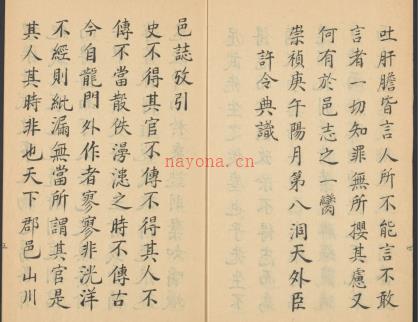 吐肝膽皆言人所不能言不敢
言者一切知罪無所攖其慮又
何有於邑志之一臠
崇禎庚午陽月第八洞天外臣
許令典識
邑誌攷引
史不得其官不傳不得其人不
傳不當散佚漫漶之時不傳古
今自龍門外作者寥寥非洸洋
不經則紕漏無當所謂其官是
其人其時非也天下郡邑山川
nayona.cn